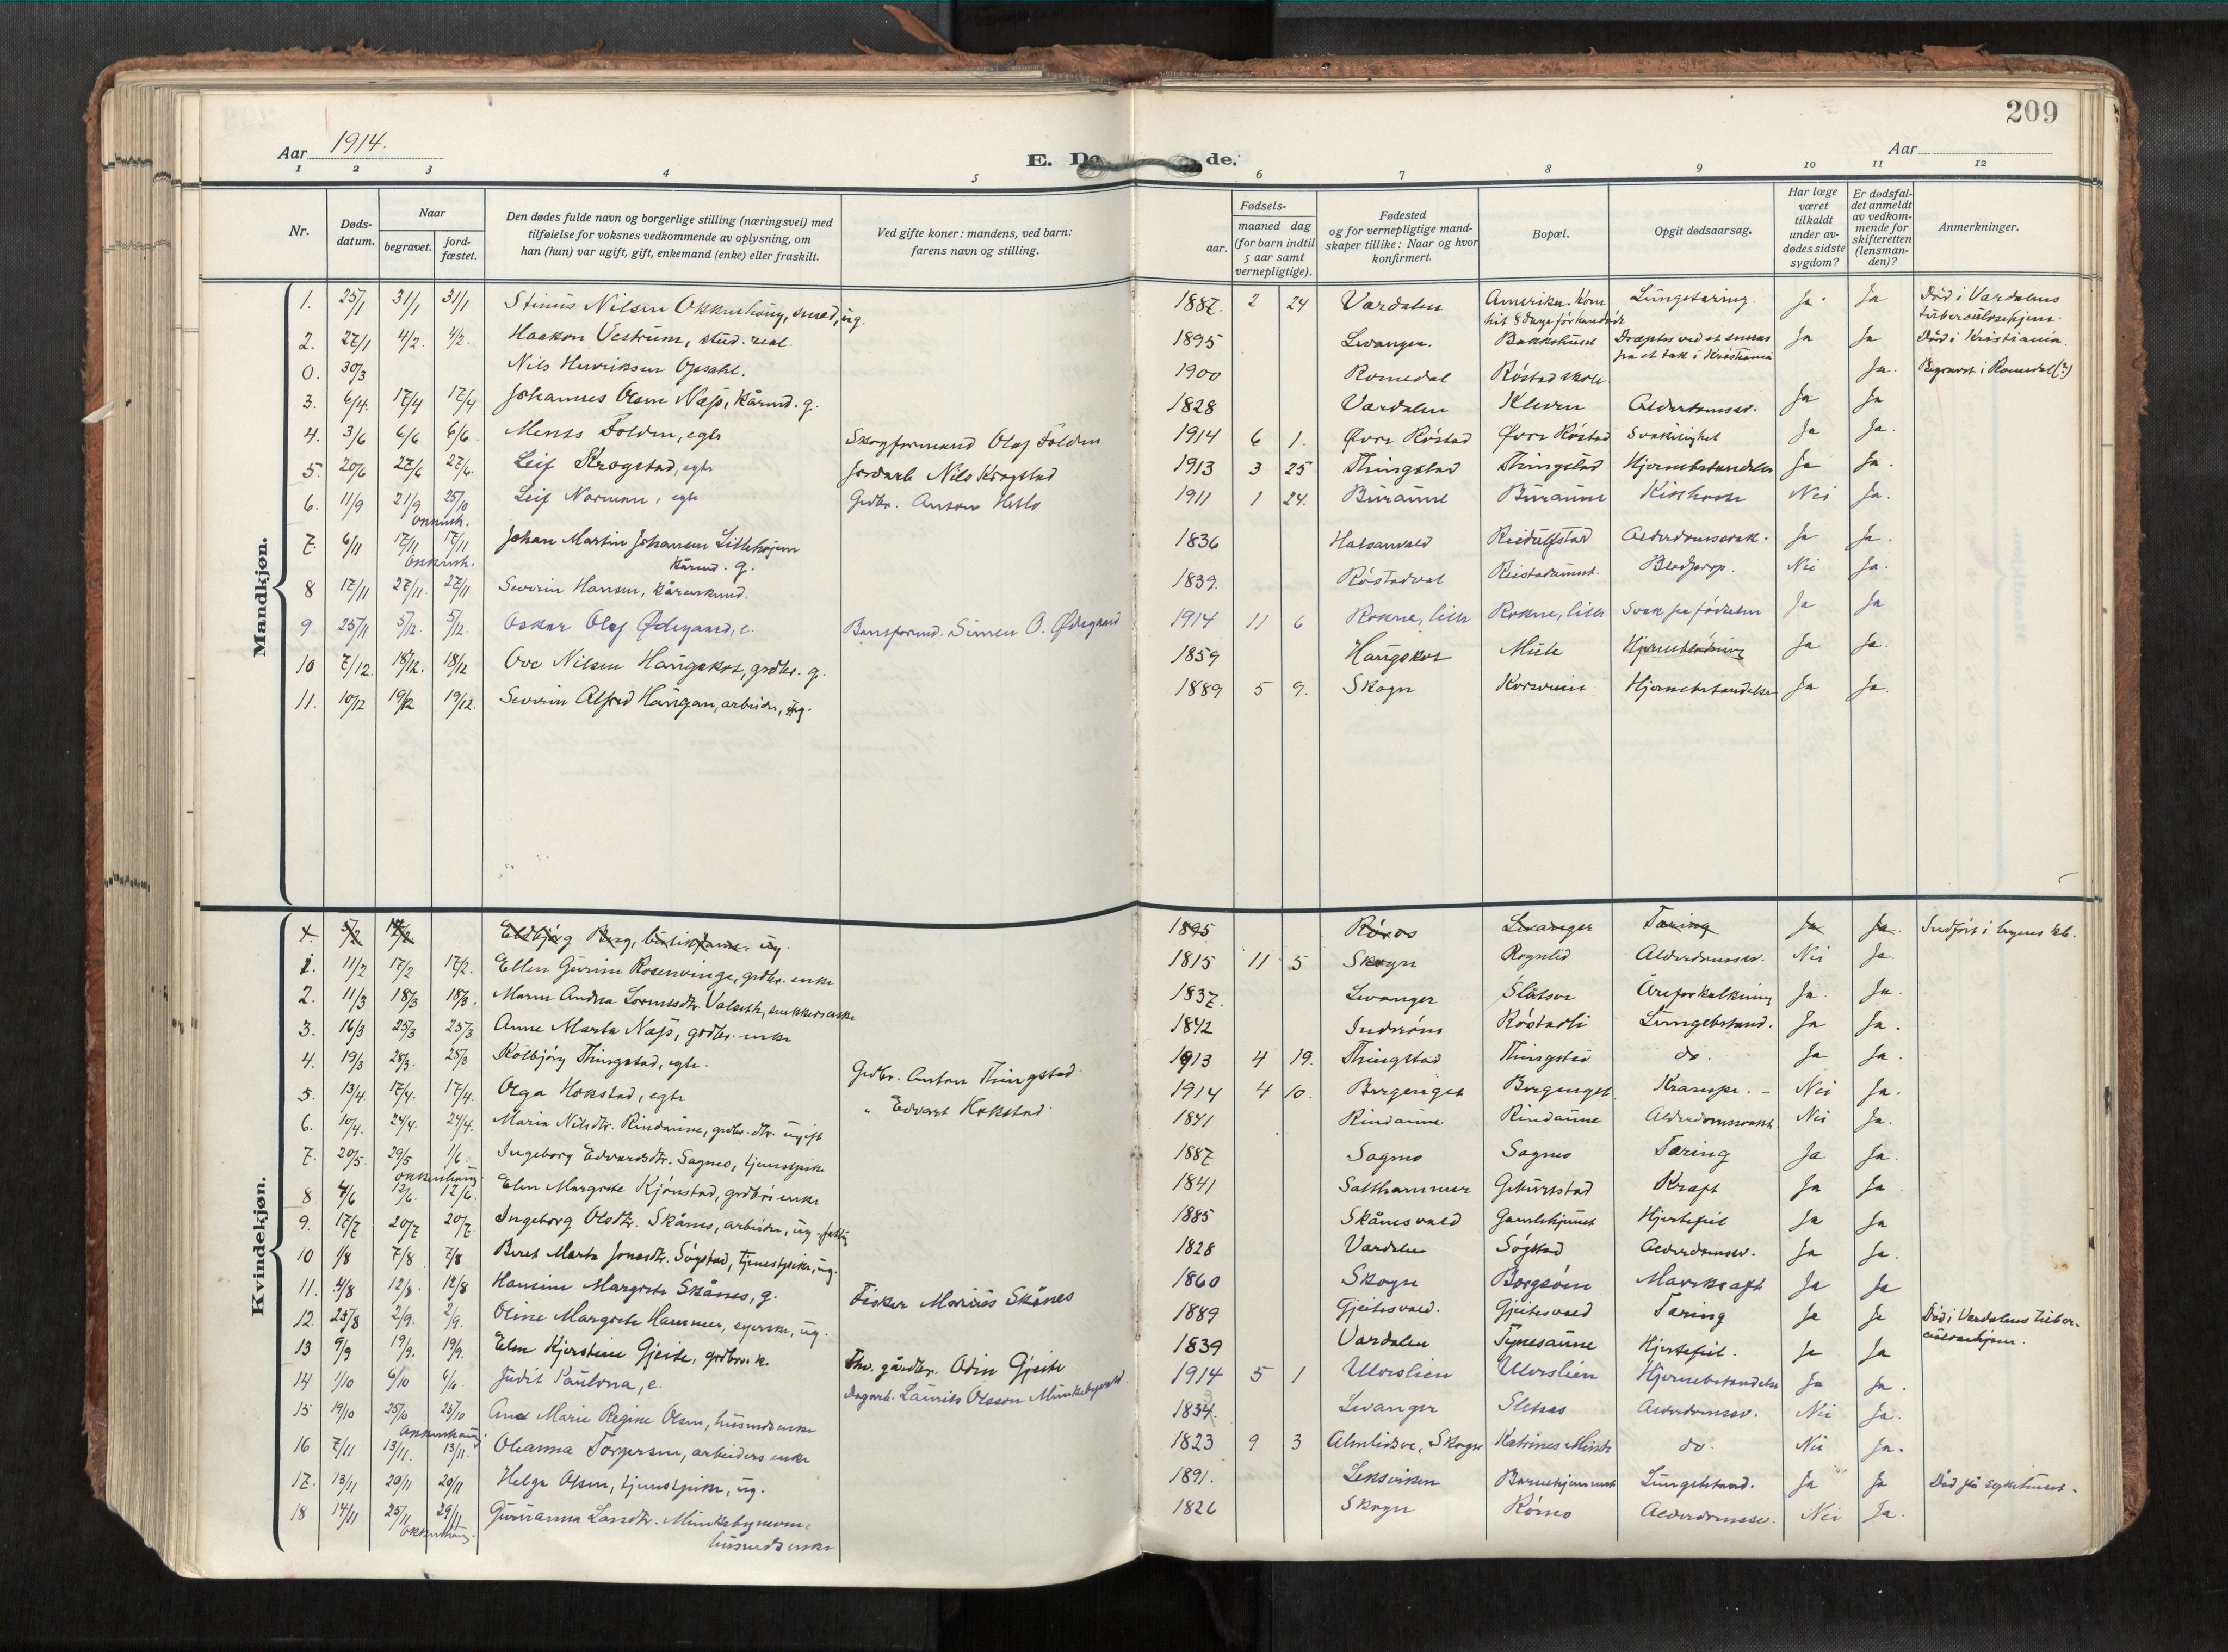 209
Aar 1914.
E. Dø de.
Aar
1 2 3 4 5 6 7 8 9 10 11 12
Nr.
Døds-datum.
Naar
begravet.
jord-fæstet.
Den dødes fulde navn og borgerlige stilling (næringsvei) med
tilføielse for voksnes vedkommende av oplysning, om
han (hun) var ugift, gift, enkemand (enke) eller fraskilt.
Ved gifte koner: mandens, ved barn:
farens navn og stilling.
Fødsels-
aar.
maaned dag
(for barn indtil
5 aar samt
vernepligtige).
Fødested
og for vernepligtige mand-
skaper tillike: Naar og hvor
konfirmert.
Bopæl.
Opgit dødsaarsag.
Har læge
været
tilkaldt
under av-
dødes sidste
sygdom?
Er dødsfal-
det anmeldt
av vedkom-
mende for
skifteretten
(lensman-
den)?
Anmerkninger.
Mandkjøn.
1. 25/1 31/1 31/1 Stinus Nilsen Okkenhaug, smed, ug. 1887. 2 24 Værdalen Amerika. Kom Lungetæring. Ja. Ja Död i Værdalens
hit 8 dage før han døde tuberculosehjem.
2. 27/1 4/2. 4/2. Haakon Vestrum, stud. real. 1895 Levanger. Bakkehuset Dræptes ved et sneras Ja Ja Död i Kristiania.
fra et tak i Kristiania
0. 30/3 Nils Henriksen Opsahl. 1900 Romedal Röstad skole Ja. Begravet i Romedal(?)
3. 6/4. 17/4 17/4 Johannes Olsen Næss, kårmd. g. 1828 Værdalen Kleven Alderdomssv. Ja Ja
4. 3/6 6/6 6/6. Ments Folden, egte Skogformand Olaf Folden 1914 6 1. Øvre Röstad Øvre Röstad Svakelighet Ja Ja.
5. 20/6 27/6 27/6. Leif Krogstad, egte Jordarb Nils Krogstad 1913 3 25 Thingstad Thingstad Hjernebetændelse Ja Ja.
6. 11/9 21/9 25/10 Leif Normann, egte Grdbr. Anton Hetlo 1911 1 24. Buraune Buraune Kikhoste Nei Ja.
Okkenh.
7. 6/11 17/11 17/11 Johan Martin Johansen Lillehojem 1836 Halsanvald Reidulfstad Alderdomssvak. Ja Ja.
Okkenh. kårmd. g.
8 17/11 27/11. 27/11 Severin Hansen, kårenkemd. 1839. Röstadval Reistadaunet. Blodprop. Nei Ja.
9 25/11 5/12. 5/12. Oskar Olaf Ødegaard, e. Baneformd. Simen O. Ødegaard 1914 11 6 Rokne, lille Rokne, lille Svak fra fødselen Ja Ja
10 7/12. 18/12. 18/12 Ove Nilsen Haugskot, grdbr. g. 1859 Haugskot Mule Hjerneblödning Ja Ja.
11. 10/12 19/12 19/12. Severin Alfred Haugan, arbeider, ug. 1889 5 9. Skogn Korsveien Hjernebetændelse Ja Ja.
Kvindekjøn.
1. 5/2 14/2 Eldbjørg Berg, ug. 1895 Röros Levanger Tæring Ja Ja. Indfört i byens kb.
1. 11/2 17/2 17/2. Ellen Gurine Rosenvinge, grdbr. enke 1815 11 5 Skogn Rognlid Alderdomssv. Nei Ja.
2. 11/3 18/3 18/3. Maren Andrea Lorentsdtr. Valseth, snekkers enke 1837. Levanger Slåtsve Åreforkalkning Ja. Ja.
3. 16/3 25/3 25/3 Anne Marta Næss, grdbr. enke 1842 Inderöen Röstadli Lungebetænd. Ja Ja.
4. 19/3 28/3. 28/3 Kolbjörg Thingstad, egte. Grdbr. Anton Thingstad. 1913 4 19. Thingstad Thingstad do. Ja Ja.
5. 13/4. 17/4. 17/4. Olga Hokstad, egte " Edvart Hokstad 1914 4 10. Bergenget Bergenget. Krampe. - Nei Ja.
6. 10/4. 24/4. 24/4. Maria Nilsdtr. Rindaune, grdbr. dtr. ugift 1841 Rindaune Rindaune Alderdomssvakh Nei Ja.
7. 20/5. 29/5 1/6. Ingeborg Edvardsdtr. Sagmo, tjenestpike 1887 Sagmo Sagmo Tæring Ja Ja.
Okkenhaug
8 4/6 12/6. 12/6. Elen Margrete Kjönstad, grdbrs enke 1841 Salthammer Geburstad Kræft Ja Ja
9. 17/7 20/7 20/7 Ingeborg Olsdtr. Skånes, arbeider, ug. fattig 1885 Skånesvald Gamlehjemmet Hjertefeil Ja Ja
10 1/8 7/8 7/8 Beret Marta Jonasdtr. Søgstad, tjenestpike, ug. 1828 Værdalen Søgstad Alderdomssv. Ja Ja.
11. 4/8 12/8. 12/8 Hansine Margrete Skånes, g. Fisker Marius Skånes 1860 Skogn Borgsöen Mavekræft Ja Ja
12. 25/8 2/9. 2/9. Oline Margrete Hammer, syerske, ug. 1889 Gjeitesvald. Gjeitesvald Tæring Ja Ja Död i Værdalens tuber-
culosehjem.
13 9/9 19/9. 19/9. Elen Kjerstine Gjeite, grdbr. k. Fhv. gårdbr. Odin Gjeite 1839 Værdalen Tynesaune Hjertefeil. Ja Ja
14 1/10 6/10 6/10 Judit Paulona, e. Dagarb. Laurits Olsson Munkebyvald 1914 5 1 Ulveslien Ulveslien Hjernebetændelse Ja Ja.
15 19/10 25/10 25/10 Ane Marie Regine Olsen, husmds enke 1834. Levanger Sletsas Alderdomssv. Nei Ja.
Okkenhaug
16 7/11 13/11. 13/11. Olianna Torgersen, arbeiders enke 1823 9 3 Almlidsve, Skogn Katrines Minde do. Nei Ja.
17. 13/11 20/11 20/11 Helga Olsen, tjenestpike, ug. 1891. Leksviken Barnehjemmet Lungebetænd. Ja Ja Död på sykehuset.
18 14/11 25/11 29/11 Guruanna Larsdtr. Munkebymoen 1826 Skogn Römo Alderdomssv. Nei Ja.
Okkenhaug. husmds enke